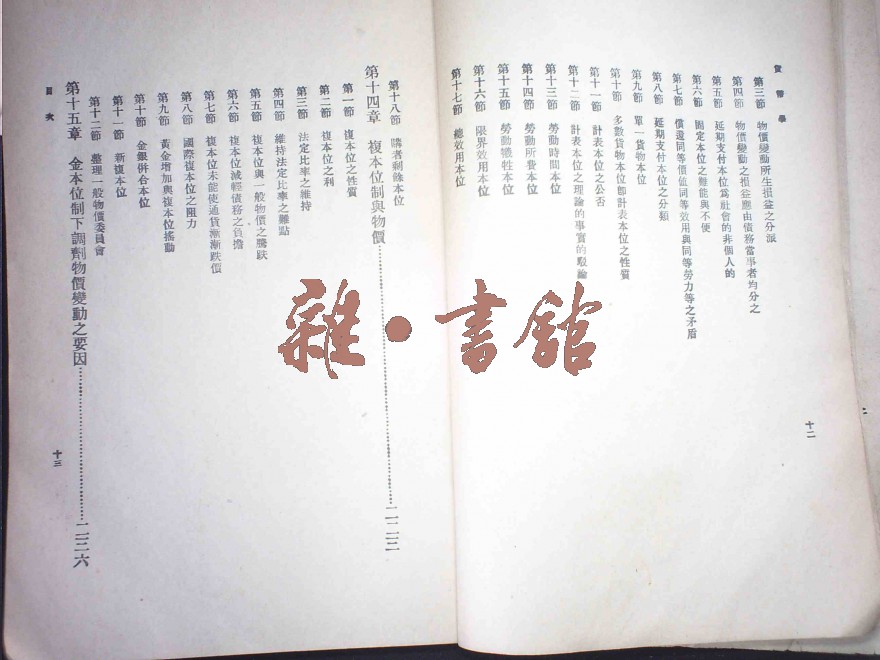 貨幣學
第三節 物價變動所生損益之分派
第四節 物價變動之損益應由債務當事者均分之
第五節 延期支付本位爲社會的非個人的
第六節 固定本位之難能與不便
第七節 償還同等價値同等效用與同等勞力等之矛盾
第八節 延期支付本位之分類
第九節 單一貨物本位
第十節 多數貨物本位卽計表本位之性質
第十一節 計表本位之公否
第十二節 計表本位之理論的事實的駁論
第十三節 勞動時間本位
第十四節 勞動所費本位
第十五節 勞動犧牲本位
第十六節 限界效用本位
第十七節 總效用本位
十二
第十八節 購者剩餘本位
第十四章 複本位制與物價…………二一二
第一節 複本位之性質
第二節 複本位之利
第三節 法定比率之維持
第四節 維持法定比率之難點
第五節 複本位與一般物價之騰跌
第六節 複本位減輕債務之負擔
第七節 複本位未能使通貨漸漸跌價
第八節 國際複本位之阻力
第九節 黃金增加與複本位搖動
第十節 金銀併合本位
第十一節 新複本位
第十二節 整理一般物價委員會
第十五章 金本位制下調劑物價變動之要因…………二二六
目次
十三
雜·書館